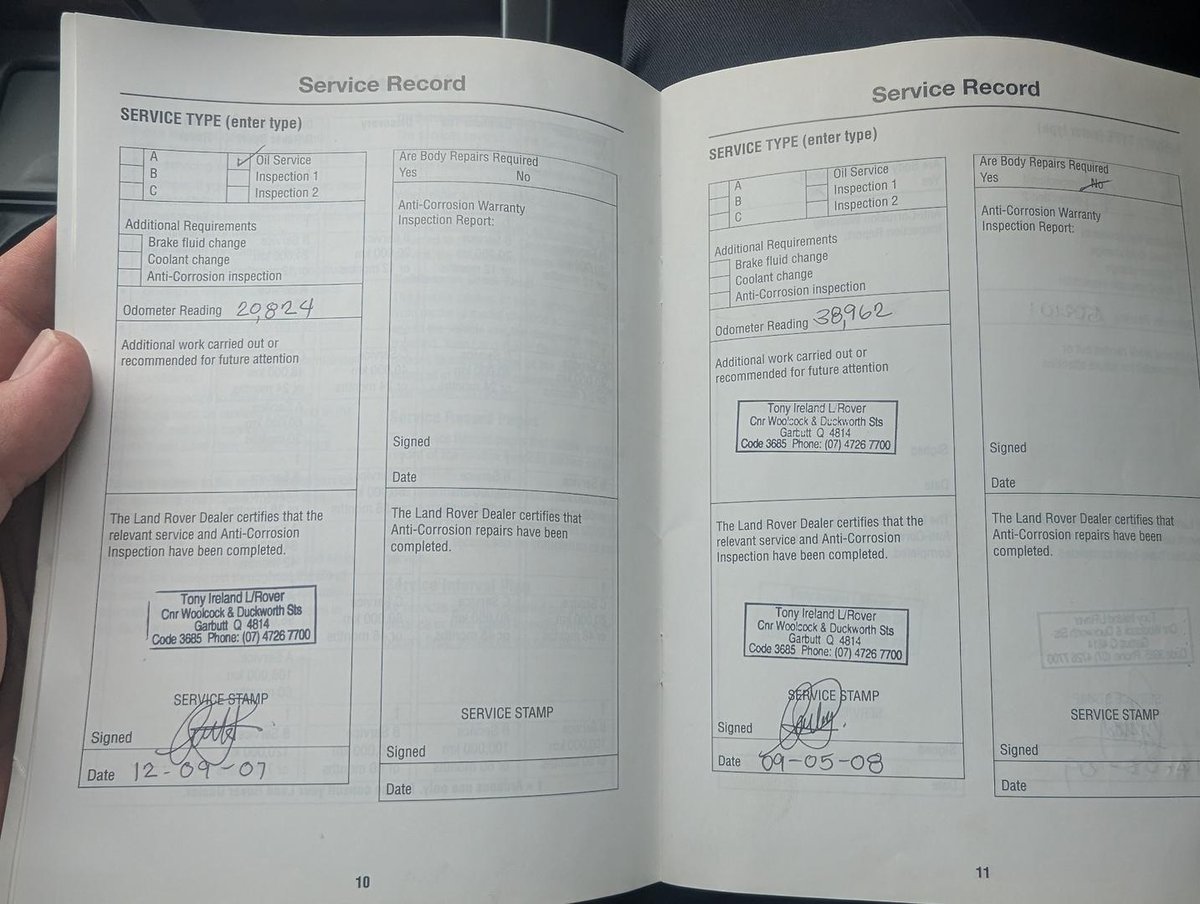 Service Record
SERVICE TYPE (enter type)
A
B
C
Oil Service
Inspection 1
Inspection 2
Additional Requirements
Brake fluid change
Coolant change
Anti-Corrosion inspection
Odometer Reading 20,824
Additional work carried out or
recommended for future attention
The Land Rover Dealer certifies that the
relevant service and Anti-Corrosion
Inspection have been completed.
Tony Ireland L/Rover
Cnr Woolcock & Duckworth Sts
Garbutt Q 4814
Code 3685 Phone: (07) 4726 7700
SERVICE STAMP
Signed
Date 12-09-07
Are Body Repairs Required
Yes No
Anti-Corrosion Warranty
Inspection Report:
Signed
Date
The Land Rover Dealer certifies that
Anti-Corrosion repairs have been
completed.
SERVICE STAMP
Signed
Date
10
Service Record
SERVICE TYPE (enter type)
A
B
C
Oil Service
Inspection 1
Inspection 2
Additional Requirements
Brake fluid change
Coolant change
Anti-Corrosion inspection
Odometer Reading 38,962
Additional work carried out or
recommended for future attention
Tony Ireland L/Rover
Cnr Woolcock & Duckworth Sts
Garbutt Q 4814
Code 3685 Phone: (07) 4726 7700
The Land Rover Dealer certifies that the
relevant service and Anti-Corrosion
Inspection have been completed.
Tony Ireland L/Rover
Cnr Woolcock & Duckworth Sts
Garbutt Q 4814
Code 3685 Phone: (07) 4726 7700
SERVICE STAMP
Signed
Date 09-05-08
Are Body Repairs Required
Yes No
Anti-Corrosion Warranty
Inspection Report:
Signed
Date
The Land Rover Dealer certifies that
Anti-Corrosion repairs have been
completed.
SERVICE STAMP
Signed
Date
11